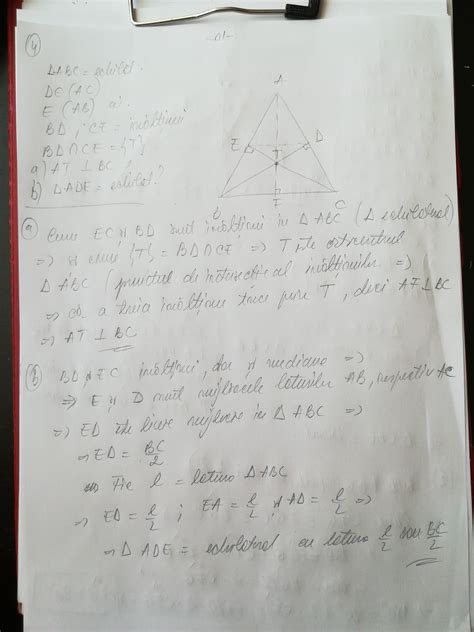 ④
-01-
Δ ABC = echilat.
D ∈ (AC)
E (AB) aî.
BD, CE = înălțimi
BD ∩ CE = {T}
a) AT ⊥ BC
b) Δ ADE = echilat?
A
E
D
T
B
C
F
ⓐ Cum EC și BD sunt înălțimi în Δ ABC (Δ echilateral)
=> și cum {T} = BD ∩ CE => T este ortocentrul
Δ ABC (punctul de intersecție al înălțimilor =>
=> că a treia înălțime trece prin T, deci AF ⊥ BC
=> AT ⊥ BC
ⓑ BD și EC înălțimi, dar și mediane =>
=> E și D sunt mijloacele laturilor AB, respectiv AC
=> ED este linie mijlocie în Δ ABC =>
=> ED = BC/2
Fie l = latura Δ ABC
=> ED = l/2 ; EA = l/2 și AD = l/2 =>
=> Δ ADE = echilateral cu latura l/2 sau BC/2